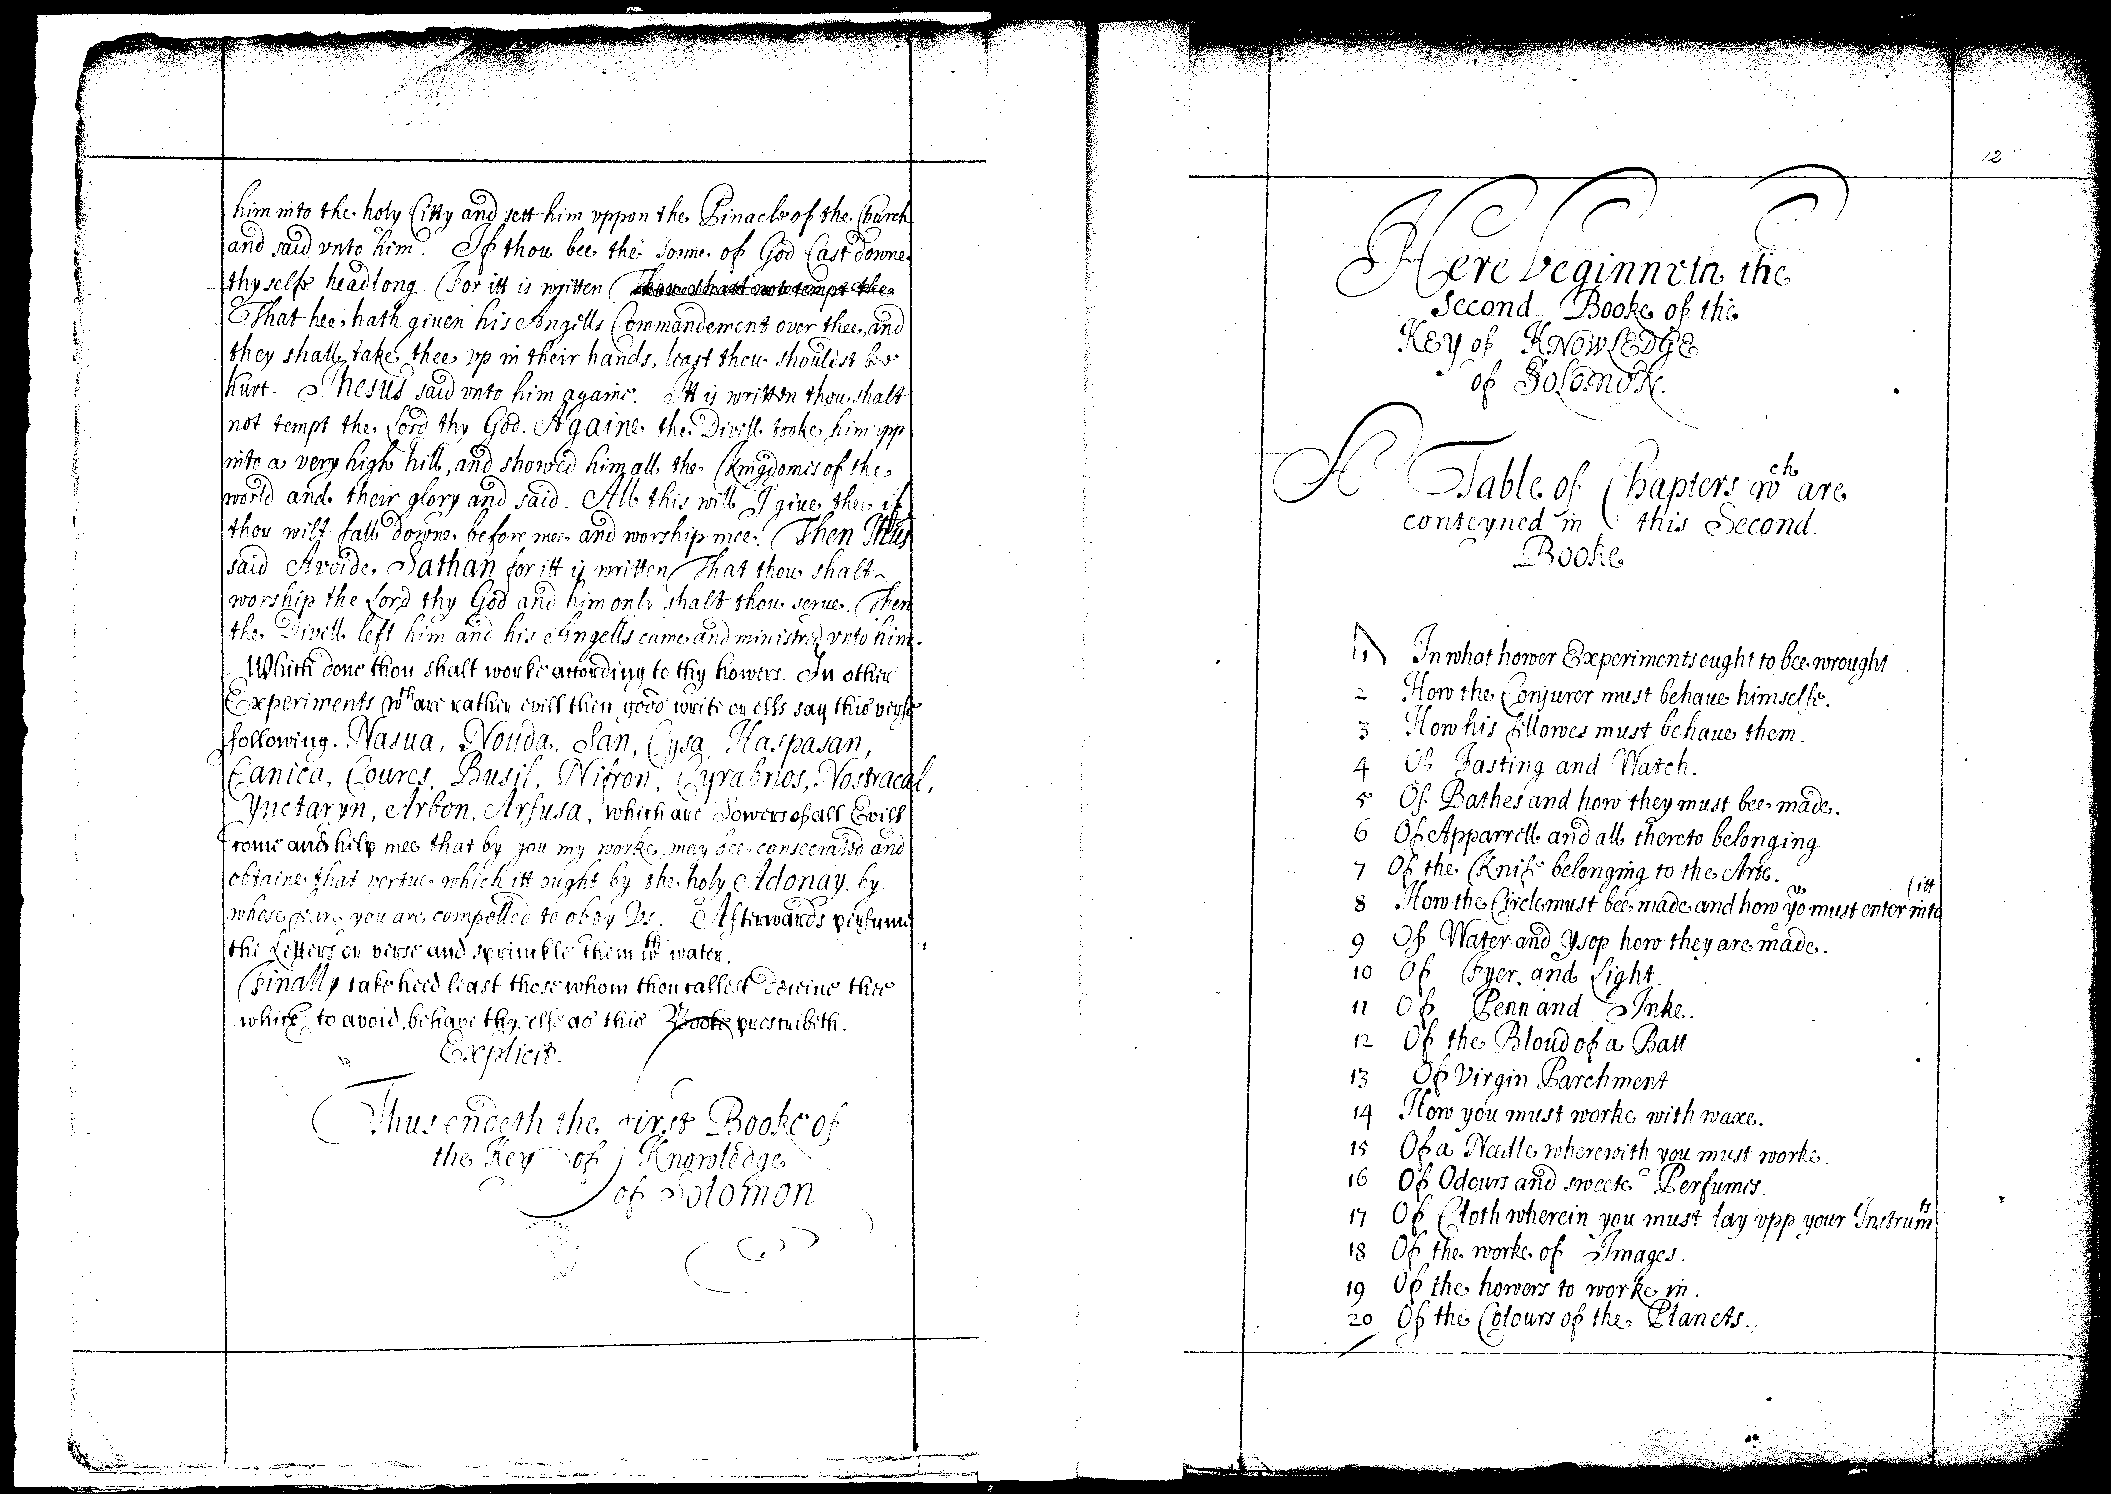 him into the holy Citty and sett him vppon the Pinacle of the Church
and said vnto him. If thou bee the sonne of God Cast downe
thyselfe headlong For itt is written Thou shalt not tempt the
That hee hath giuen his Angells Commandement over thee, and
they shall take thee vp in their hands, least thou shouldst bee
hurt. Jhesus said vnto him againe. Itt is written thou shalt
not tempt the Lord thy God. Againe the Divell tooke him vpp
into a very high hill, and showed him all the Kingdomes of the
world and their glory and said. All this will I giue thee if
thou wilt fall downe before mee and worship mee. Then Jhus
said Avoide Sathan for itt is written That thou shalt
worship the Lord thy God and him only shalt thou serue. Then
the Divell left him and his Angells came and ministred vnto him.
Which done thou shalt worke according to thy howers. In other
Experiments wch are rather evill then good write or ells say this verse
following. Nasua, Nouda, San, Cysa, Haspasan,
Canica, Coures, Busil, Nifron, Cyrabrios, Nostracal,
Ynctaryn, Arbon, Arfusa, which are Sowers of all Evill
come and help mee that by you my worke may bee consecrated and
obtaine that vertue which itt ought by the holy Adonay, by
whose you are compelled to obey Vs. Afterwards perfume
the Letters or verse and sprinkle them wth water.
Finally take heed least those whom thou callest deceiue thee
which to avoid, behaue thyselfe as this Booke prescribeth.
Explicit.
Thus endeth the first Booke of
the Key of Knowledge
of Solomon
12
Here beginneth the
Second Booke of the
Key of KNOWLEDGE
of SOLOMON.
A Table of Chapters wch are
conteyned in this Second
Booke
1 In what hower Experiments ought to bee wrought
2 How the Conjurer must behaue himselfe.
3 How his fellowes must behaue them.
4 Of Fasting and Watch.
5 Of Bathes and how they must bee made.
6 Of Apparrell and all thereto belonging
7 Of the Knife belonging to the Arte.
8 How the Circle must bee made and how yo must enter into
(itt
9 Of Water and Ysop how they are made.
10 Of Fyer and Light
11 Of Penn and Inke.
12 Of the Bloud of a Batt
13 Of Virgin Parchment
14 How you must worke with waxe.
15 Of a Needle wherewith you must worke.
16 Of Odours and sweete Perfumes.
17 Of Cloth wherein you must lay vpp your Instrumts
18 Of the worke of Images.
19 Of the howers to worke in.
20 Of the Colours of the Planets.